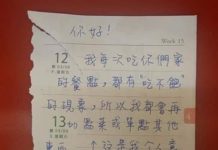 你好!
Week 15
12 我每次吃你們家
的餐點，都有"吃不飽"
的現象，所以我都會再
13 加點菜或單點其他
東西